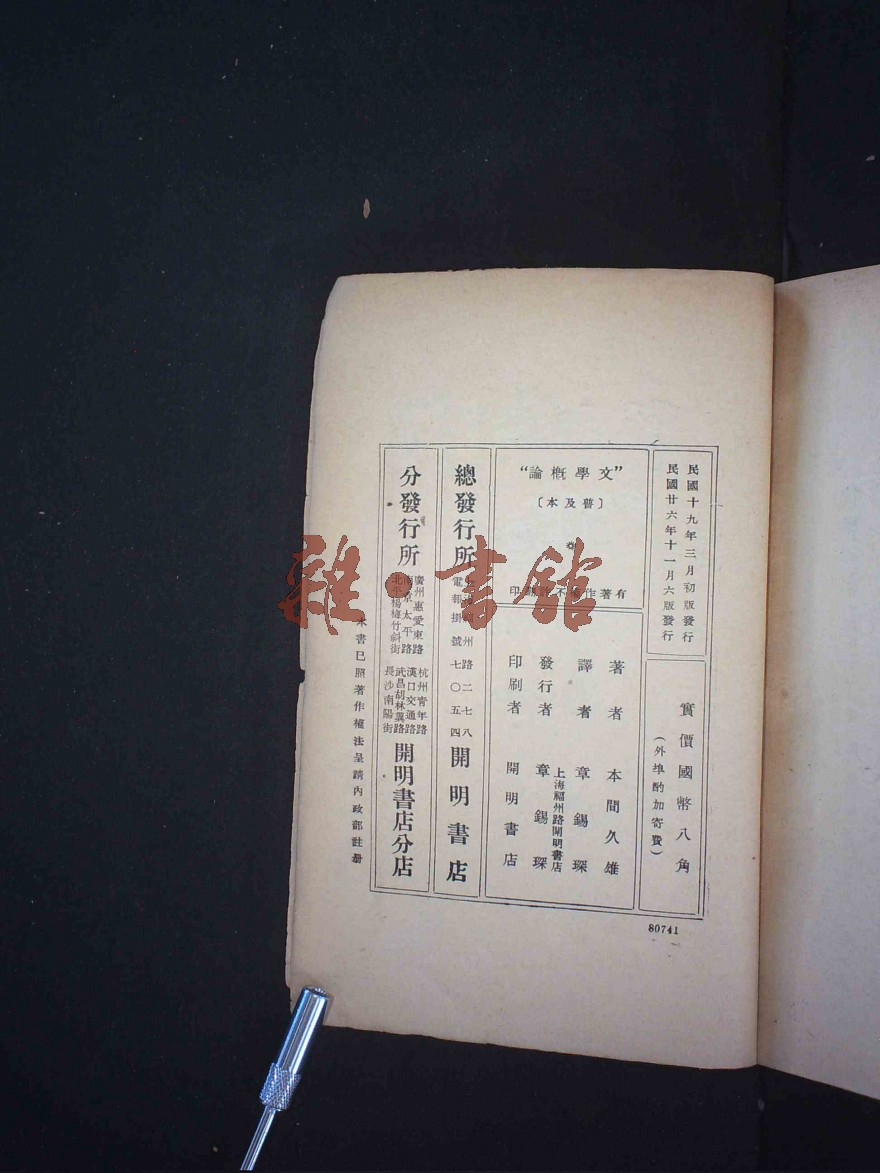 民國十九年三月初版發行
民國廿六年十一月六版發行
實價國幣八角
(外埠酌加寄費)
"文學概論"
〔普及本〕
有著作權不許翻印
著者 本間久雄
譯者 章錫琛
發行者 章錫琛
上海福州路開明書店
印刷者 開明書店
總發行所
福州路二七八
電報掛號七〇五四
開明書店
分發行所
廣州惠愛東路
南京太平路
北平楊梅竹斜街
杭州青年路
漢口交通路
武昌胡林翼路
長沙南陽街
開明書店分店
本書已照著作權法呈請內政部註冊
80741
雜·書館